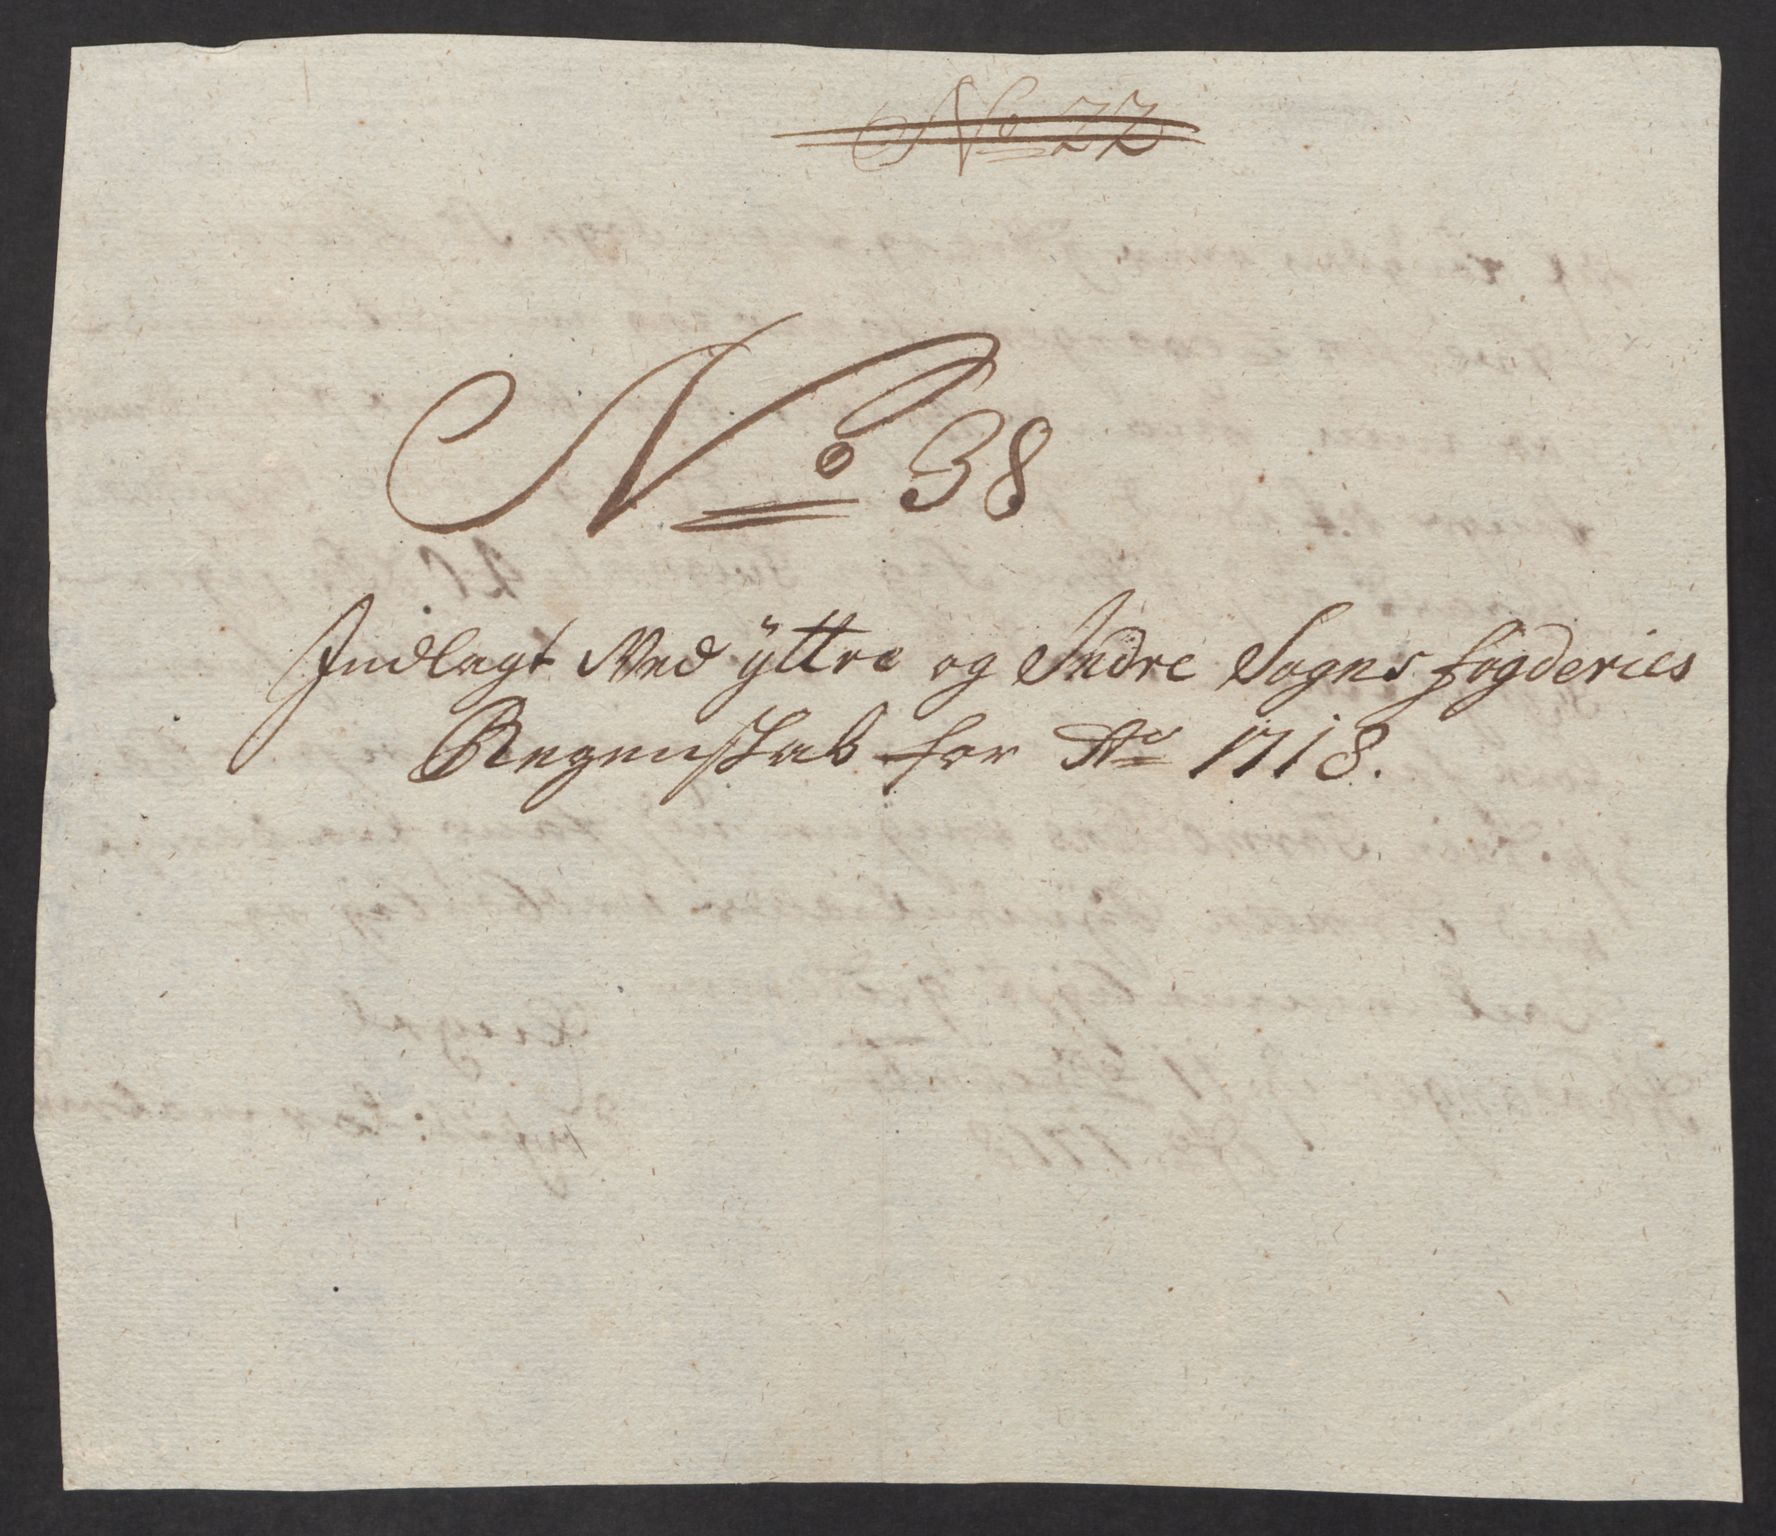 No 22
No 38
Indlagt Ved ÿttre og Indre Sogns fogderies
Regenskab for Ao 1718.